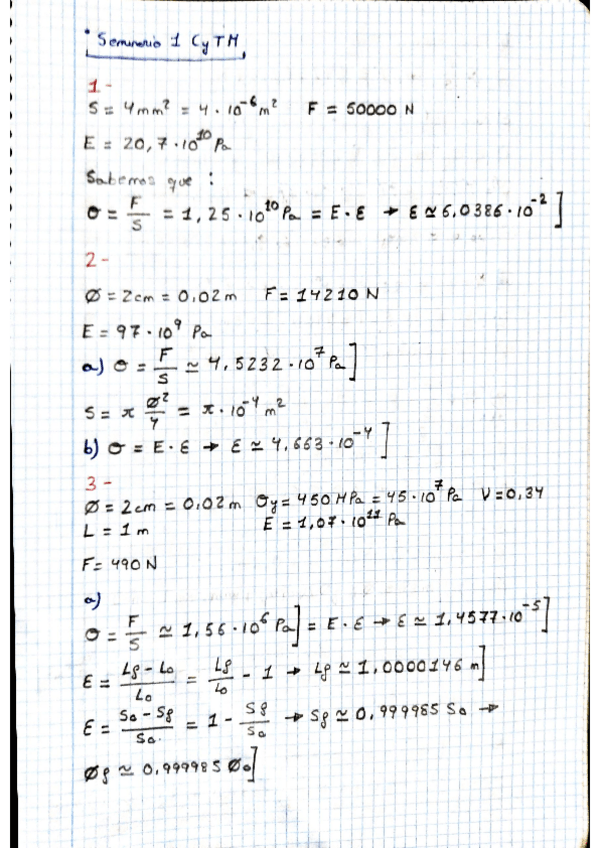 * Seminario 1 CyTM
1-
S = 4mm² = 4 · 10⁻⁶ m² F = 50000 N
E = 20,7 · 10¹⁰ Pa
Sabemos que :
σ = F/S = 1,25 · 10¹⁰ Pa = E · ε → ε ≃ 6,0386 · 10⁻² ]
2-
Ø = 2cm = 0,02 m F = 14210 N
E = 97 · 10⁹ Pa
a) σ = F/S ≃ 4,5232 · 10⁷ Pa ]
S = π Ø²/4 = π · 10⁻⁴ m²
b) σ = E · ε → ε ≃ 4,663 · 10⁻⁴ ]
3-
Ø = 2cm = 0,02 m σy = 450 MPa = 45 · 10⁷ Pa V = 0,34
L = 1 m E = 1,07 · 10¹¹ Pa
F = 490 N
a)
σ = F/S ≃ 1,56 · 10⁶ Pa ] = E · ε → ε ≃ 1,4577 · 10⁻⁵ ]
ε = Lf - L₀/L₀ = Lf/L₀ - 1 → Lf ≃ 1,0000146 m ]
ε = S₀ - Sf/S₀ = 1 - Sf/S₀ → Sf ≃ 0,999985 S₀ →
Øf ≃ 0,999985 Ø₀ ]